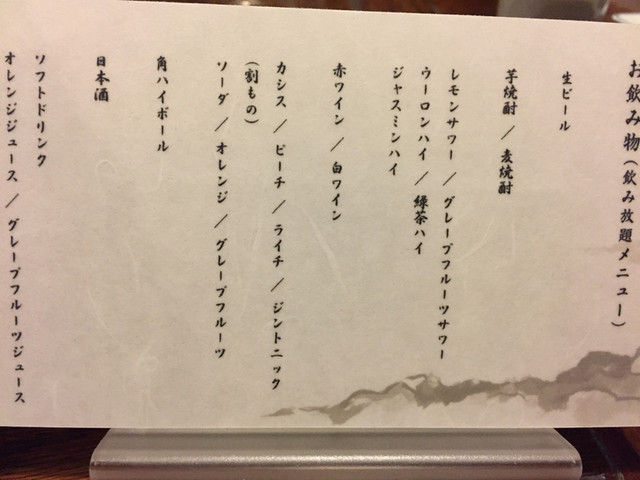 お飲み物(飲み放題メニュー)
生ビール
芋焼酎 / 麦焼酎
レモンサワー / グレープフルーツサワー
ウーロンハイ / 緑茶ハイ
ジャスミンハイ
赤ワイン / 白ワイン
カシス / ピーチ / ライチ / ジントニック
(割もの)
ソーダ / オレンジ / グレープフルーツ
角ハイボール
日本酒
ソフトドリンク
オレンジジュース / グレープフルーツジュース